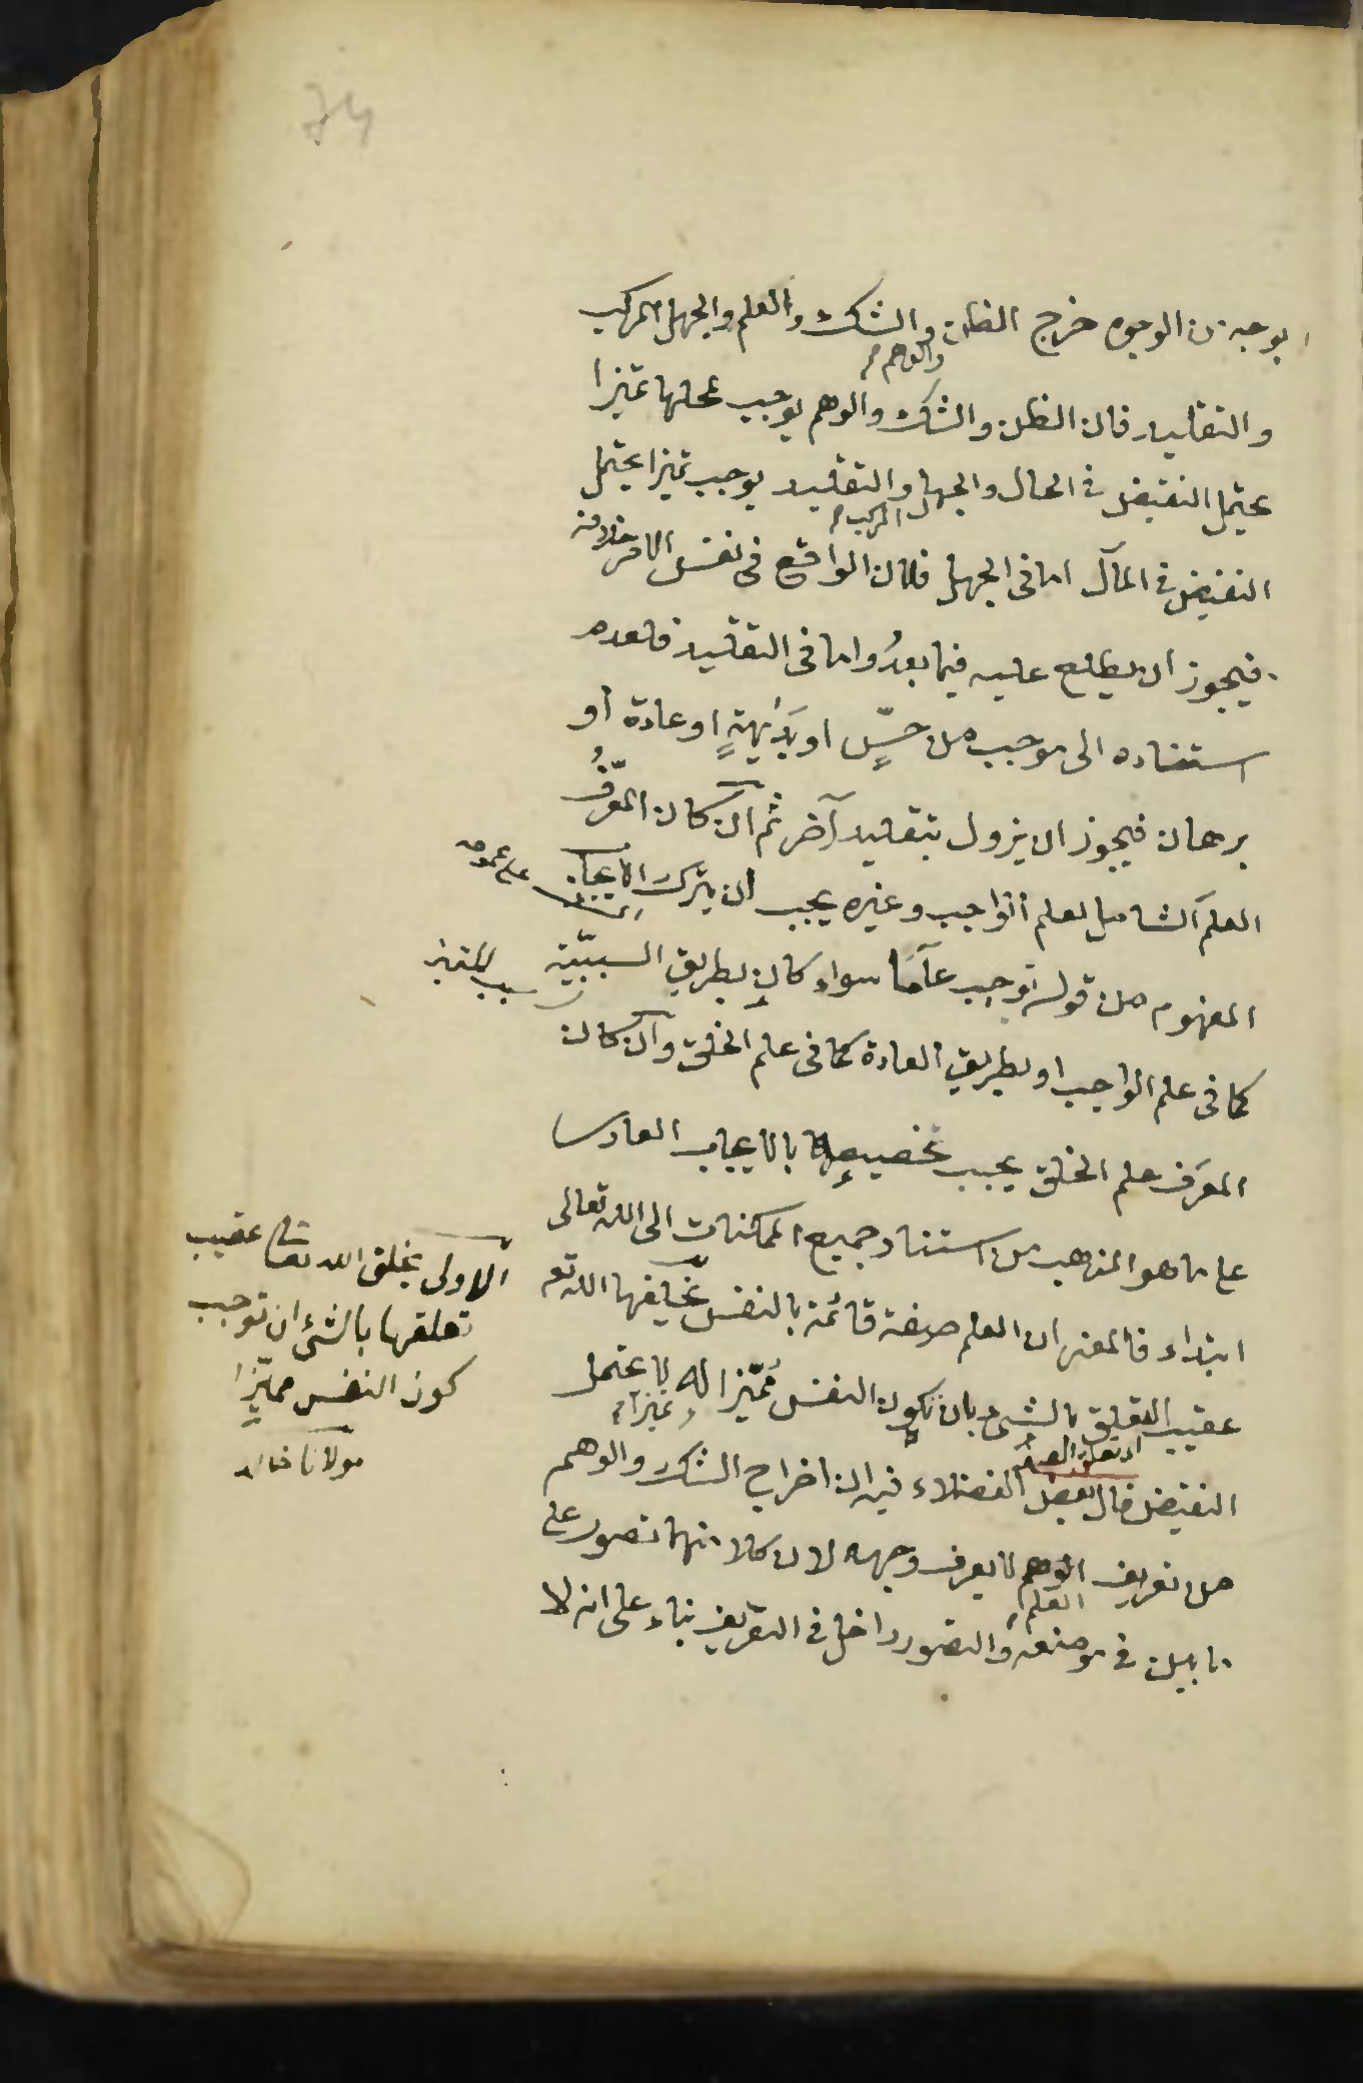 بوجه من الوجوه خرج الظن والشك والعلم والجهل المركب
والوهم
والتقليد فان الظن والشك والوهم يوجب لمحلها تميزا
يحتمل النقيض في الحال والجهل والتقليد يوجب تميزا يحتمل
المركب
النقيض في المآل اما في الجهل فلان الواقع في نفس الامر خلافه
فيجوز ان يطلع عليه فيما بعدُ واما في التقليد فلعدم
استناده الى موجب من حسٍّ او بَدٰيهةٍ او عادة او
برهان فيجوز ان يزول بتقليد آخر ثم ان كان المعرَّفُ
العلمَ الشامل لعلم الواجب وغيره يجب ان يترك الايجاب على عمومه
المفهوم من قوله توجب عاما سواء كان بطريق السببيّة
سبب للتميز
كما في علم الواجب او بطريق العادة كما في علم الخلق وان كان
المعرَف علم الخلق يجب تخصيصها بالايجاب العادي
على ما هو المذهب من استناد جميع الممكنات الى الله تعالى
ابتداء فالمعنى ان العلم صفة قائمة بالنفس يخلقها الله تع
عقيب التعلق بالشيء بان يكون النفس مُميّزا له لا يحتمل
تميزا
النقيض قال بعض الفضلاء فيه ان اخراج الشك والوهم
من تعريف الوهم لا يعرف وجهه لان كلا منهما تصور على
العلم
ما بين في موضعه والتصور داخل في التعريف بناء على انه لا
الاولى يخلق الله تعالى عقيب
تعلقها بالشئ ان توجب
كون النفس مميّزا
مولانا خالد